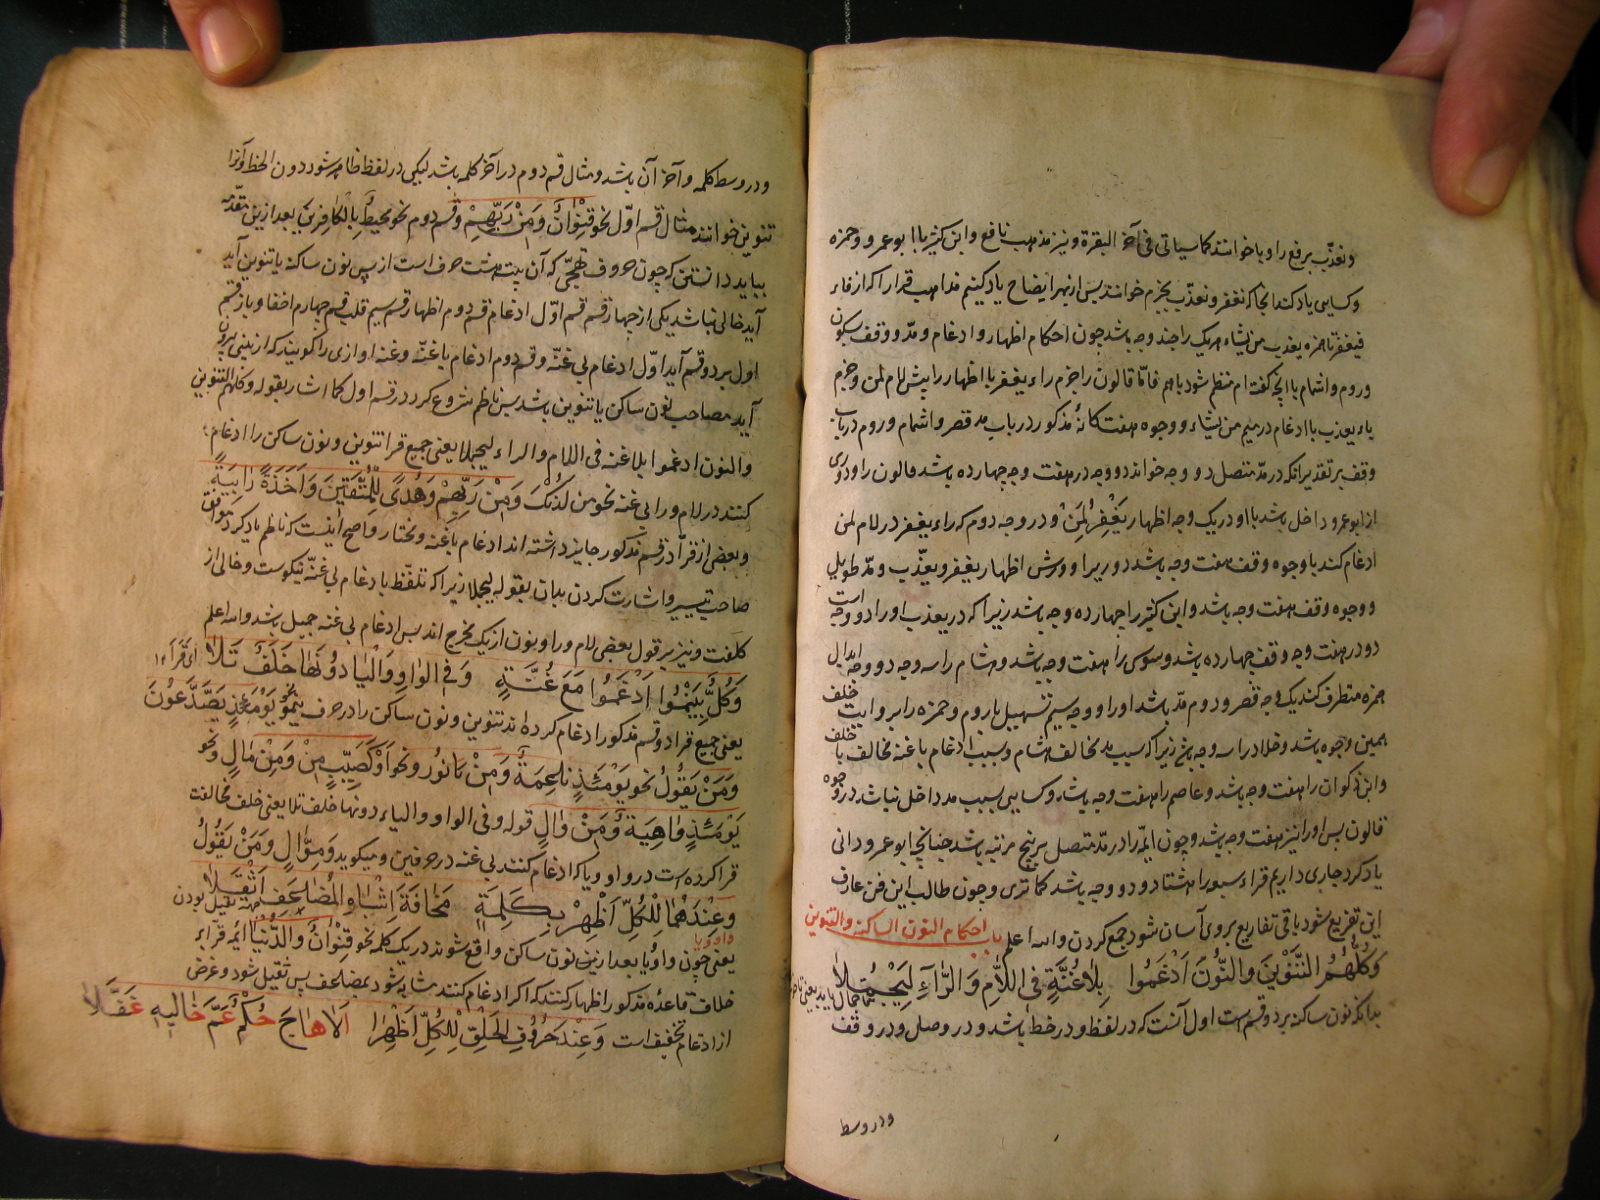 ونعذب برفع را وبا خوانند كما سیاتی فی آخر البقرة ونیز مذهب نافع وابن كثیر با ابو عمرو وحمزه
وكسایی یاد كند آنجا كه نغفر ونعذب بجزم خوانند پس از بهر ایضاح یاد كنیم مذاهب قرا را كه از فاء
فیغفر تا همزه یعذب من یشاء هر یك را چند وجه باشد چون احكام اظهار وادغام ومد ووقف سكون
وروم واشمام با آنچه گفته‌ام منظم شود باهم فاما قالون را جزم راء یغفر با اظهار را پیش لام لمن وجزم
باء یعذب با ادغام در میم من یشاء ووجوه هفت‌كانه مذكور در باب مد قصر واشمام وروم در باب
وقف بر تقدیر آنكه در مد متصل دو وجه خواند دو وجه در هفت وجه چهارده باشد قالون را ودوری
از ابو عمرو داخل باشد با او در یك وجه اظهار یَغْفِرْ لِمَنْ ودر وجه دوم كه راء یغفر در لام لمن
ادغام كند با وجوه وقف هفت وجه باشد دوری را وورش اظهار یغفر ویعذب ومد طویل
ووجوه وقف هفت وجه باشد وابن كثیر را چهارده وجه باشد زیرا كه در یعذب او را دو وجه است
دو در هفت وجه وقف چهارده باشد وسوسی را هفت وجه باشد وهشام را سه وجه دو وجه ابدال
همزه متطرف كند یك وجه قصر ودوم مد باشد او را ووجه سیم تسهیل با روم وحمزه را بروایت خلف
همین وجوه باشد وخلاد را سه وجه باشد زیرا كه سبب مد مخالف هشام وسبب ادغام با غنه مخالف با خلف
وابن ذكوان را هفت وجه باشد وعاصم را هفت وجه باشد وكسایی بسبب مد داخل نباشد در وجوه
قالون پس او را نیز هفت وجه باشد وچون ایمه را در مد متصل بر پنج مرتبه باشد چنانچه ابو عمرو دانی
یاد كرد جاری داریم قراء سبعه را هشتاد ودو وجه باشد كما تری وچون طالب این فن عارف
این تفریع شود باقی تفاریع بروی آسان شود جمع كردن والله اعلم باب احكام النون الساكنة والتنوین
وَكُلُّهُمُ التَّنْوِینَ وَالنُّونَ اَدْغَمُوا بِلَاغُنَّةٍ فِی اللَّامِ وَالرَّآءِ لِیَجْمُلَا
بدانكه نون ساكنه بر دو قسم است اول آنست كه در لفظ ودر خط باشد ودر وصل ودر وقف
ودر وسط
ودر وسط كلمه وآخر آن باشد ومثال قسم دوم در آخر كلمه باشد لیكن در لفظ ظاهر شود دون الخط وآنرا
تنوین خوانند مثال قسم اوّل نحو قِنْوَانٌ وَمِنْ رَبِّهِمْ وقسم دوم نحو مُحِیطٌ بِالْكَافِرِینَ بعد ازین مقدمه
بباید دانستن كه چون حروف تهجّی كه آن بیست هشت حرف است از پس نون ساكنه یا تنوین آید
آید خالی نباشد یكی از چهار قسم قسم اوّل ادغام قسم دوم اظهار قسم سیم قلب قسم چهارم اخفا وباز قسم
اول بر دو قسم آید اوّل ادغام بی غنّه وقسم دوم ادغام با غنّه وغنه اوازی را كویند كه از بینی بیرون
آید مصاحب نون ساكن یا تنوین باشد پس ناظم شروع كرد در قسم اول كما اشار بقوله وكلهم التنوین
والنون ادغموا بلا غنه فی اللام والراء لیجملا یعنی جمیع قرا تنوین ونون ساكن را ادغام
كنند در لام ورا بی غنه نحو من لَدُنْكَ وَمِنْ رَبِّهِمْ وَهُدًی لِلْمُتَّقِینَ وَاَخْذَةً رَابِیَةً
وبعضی از قرّا در قسم مذكور جایز داشته اند ادغام با غنه ومختار واصح اینست كه ناظم یاد كرد توافق
صاحب تیسیر واشارت كردن بدان بقوله لیجملا زیرا كه تلفّظ با ادغام بی غنّه نیكوست وخالی از
كلفت ونیز بر قول بعضی لام ورا ونون از یك مخرج اند پس ادغام بی غنه جمیل باشد والله اعلم
وَكُلٌّ بِیَنْمُوا اَدْغَمُوا مَعَ غُنَّةٍ وَفِی الْوَاوِ وَالْیَا دُونَهَا خَلَفٌ تَلَا ای قَرَأَ
یعنی جمیع قرا دو قسم مذكور ادغام كرده اند تنوین ونون ساكن را در حرف یَنْمُو یَوْمَئِذٍ یَصَّدَّعُونَ
وَمَنْ یَقُولُ نحو یَوْمَئِذٍ نَاعِمَةٌ وَمِنْ نُورٍ ونحو اَوْ كَصَیِّبٍ مِنْ وَمِنْ مَالٍ ونحو
یَوْمَئِذٍ وَاهِیَةٌ وَمِنْ وَالٍ قوله وفی الواو والیاء دونها خلف تلا یعنی خلف مخالفت
قرا كرده است در واو ویا كه ادغام كنند بی غنه در حرفین ومیكوید وَمِنْ وَالٍ وَمَنْ یَقُولُ
وَعِنْدَهُمَا لِلْكُلِّ اَظْهِرْ بِكِلْمَةٍ مَخَافَةَ اِشْبَاهِ الْمُضَاعَفِ اَثْقَلَا
یعنی چون واو یا بعد ازین نون ساكن واقع شوند در یك كلمه نحو قِنْوَانٌ وَالدُّنْیَا ایمه قراء بر
خلاف قاعده مذكور اظهار كنند كه اكر ادغام كنند مشابه شود بمضاعف پس ثقیل شود وغرض
از ادغام تخفیف است وَعِنْدَ حُرُوفِ الْحَلْقِ لِلْكُلِّ اُظْهِرَا اَلَا هَاجَ حُكْمٌ عَمَّ خَالِیهِ غُفَّلَا